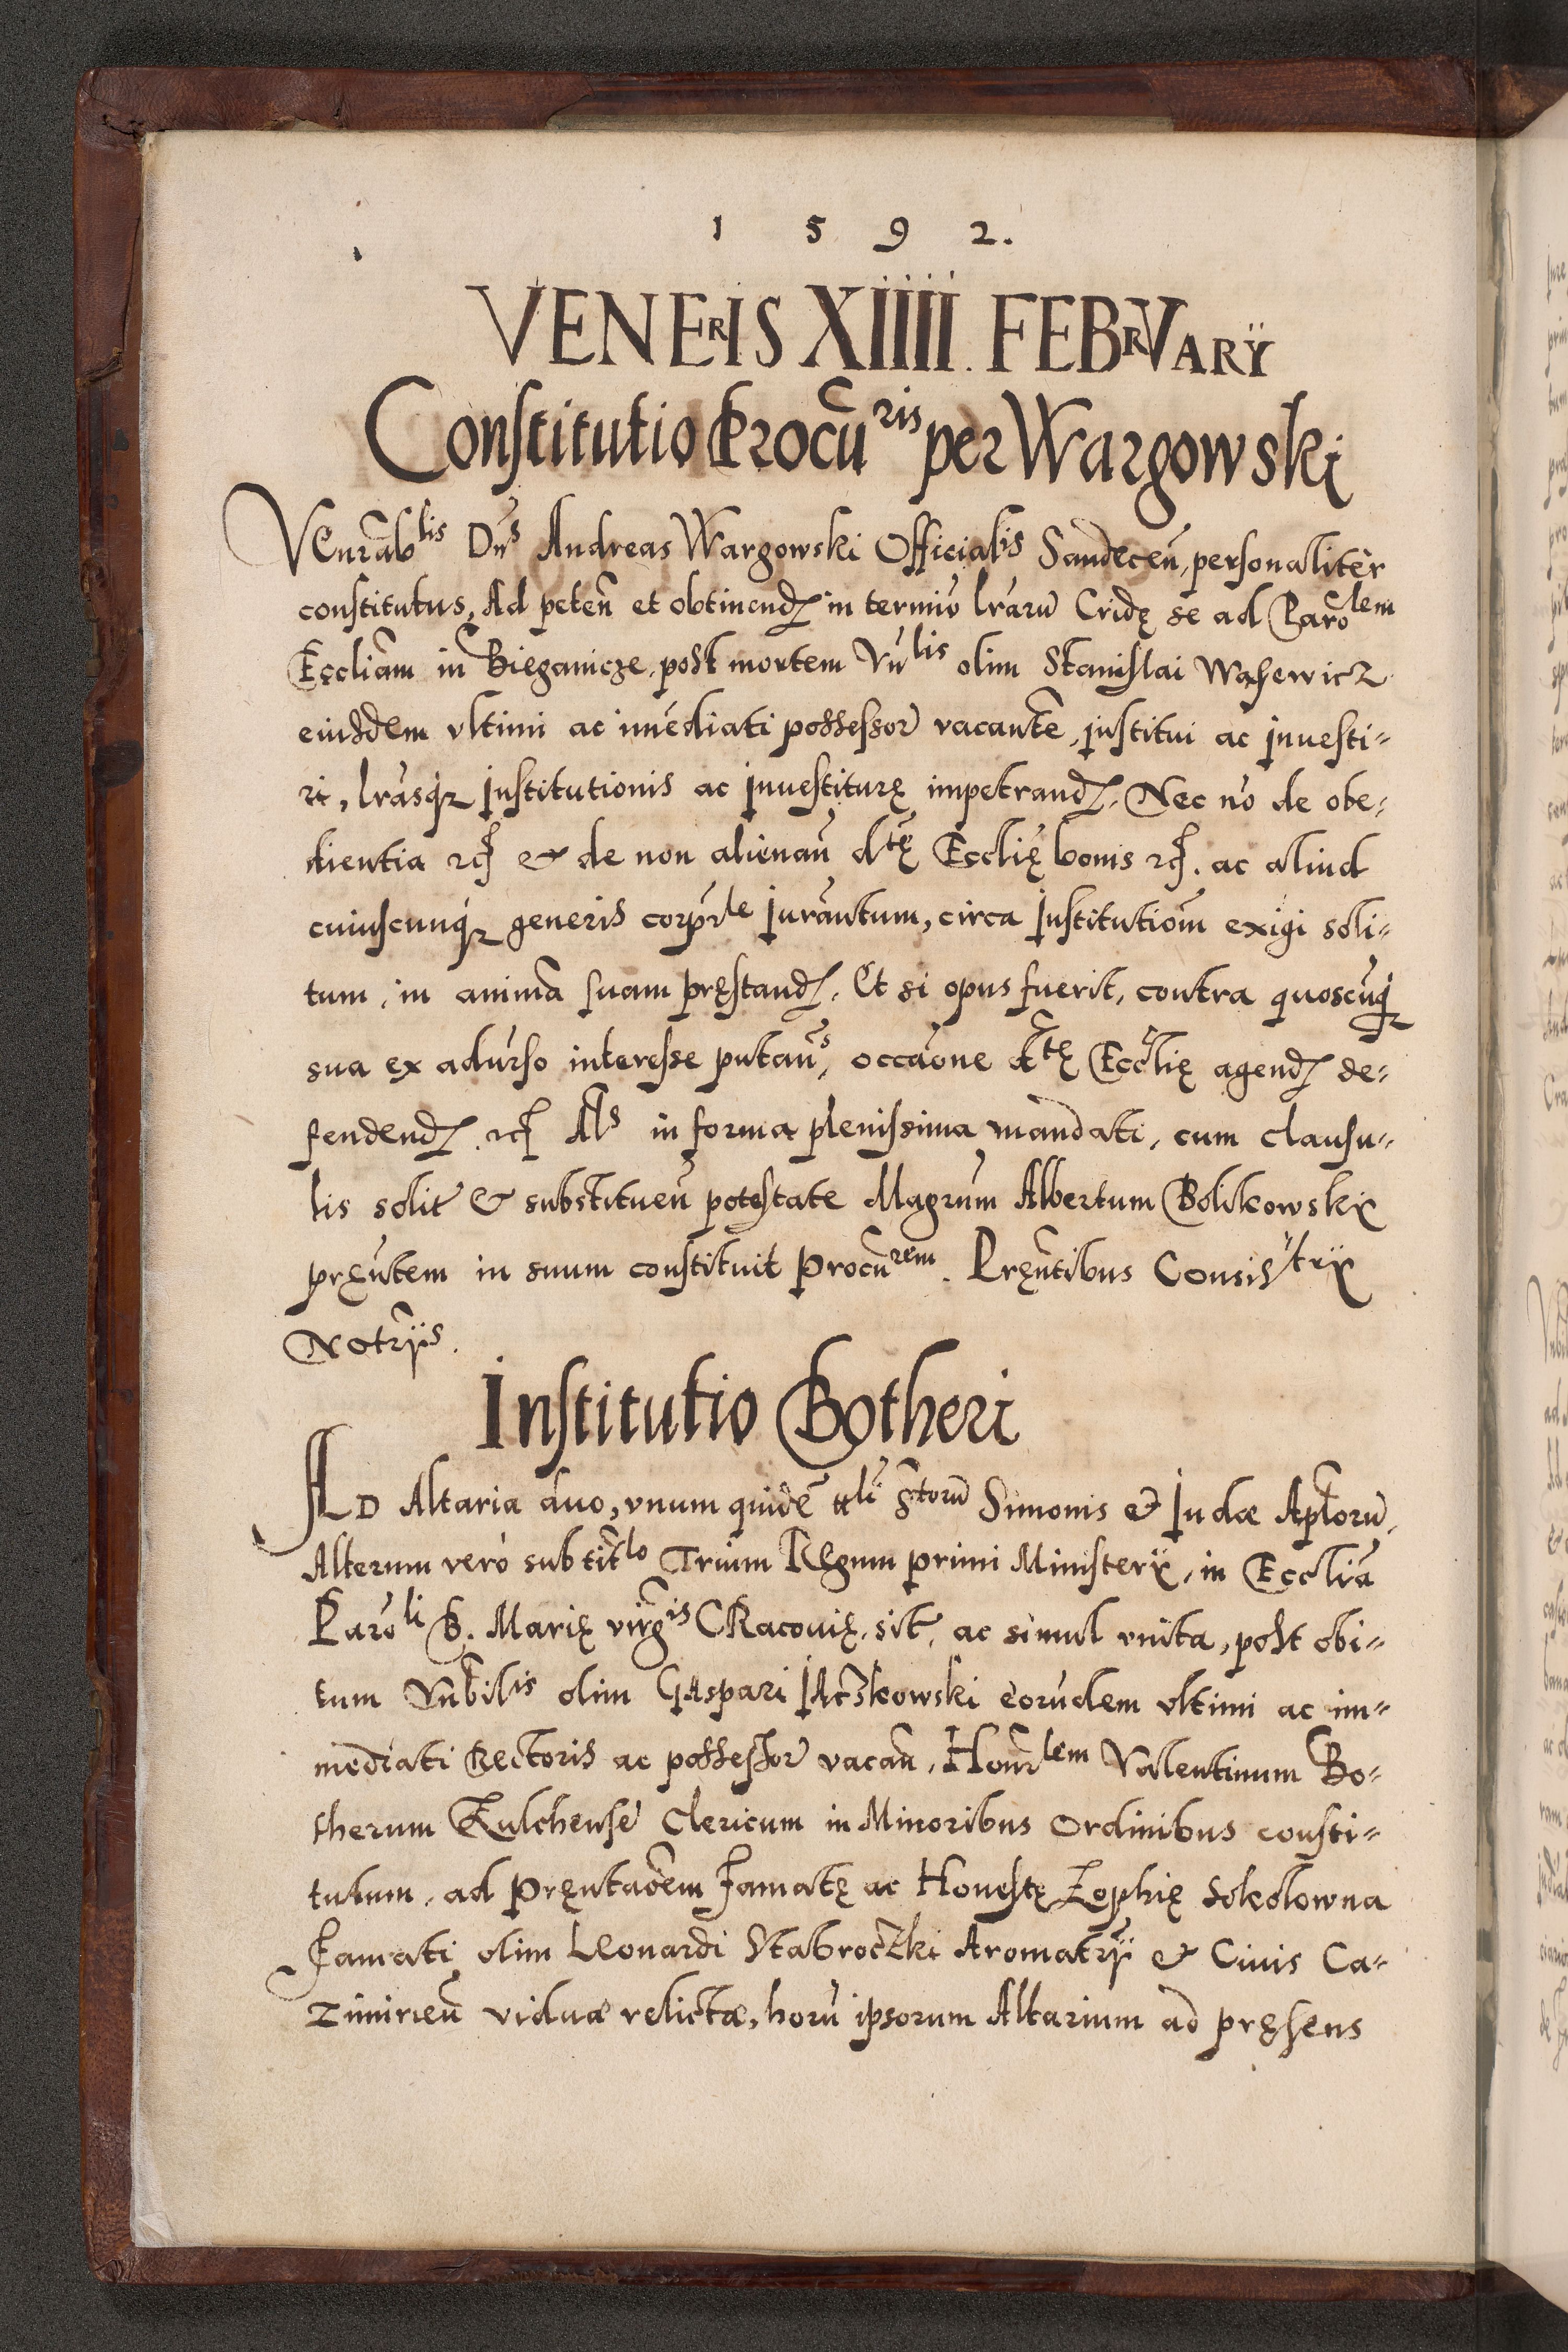 1 5 9 2.
VENERIS XIIII. FEBRVARY
Constitutio Procũris per Wargowski
VEnrãblis Dns Andreas Wargowski Officialis Sandeceñ, personaliter
constitutus, Ad peteñ et obtinend. in termio lrãru Cridę se ad Parolem
Eccliam in Bieganicze, post mortem Vnlis olim Stanislai Wąsewicz
eiusdem vltimi ac imediati possessor vacante, institui ac investi=
ri, lrãsq; institutionis ac investiturę impetrand. Nec nõ de obe=
dientia etc et de non alienañ dtę Ecclię bonis etc. ac aliud
cuiuscunq; generis corprle Iurãntum, circa institutiom exigi soli=
tum, in animã suam pręstand. Et si opus fuerit, contra quoscũq;
sua ex adũrso interesse putañs, occãone dtę Ecclię agend. de=
fendend. etc Als in forma plenissima mandati, cum clausu=
lis solit et substitueñ potestate Magrum Albertum Bolikowski
pręñtem in suum constituit Procurem. Pręñtibus Consistrÿ
Notrÿs.
Institutio Botheri
AD Altaria duo, vnum quidẽ ttli Sctorũ Simonis et Iudæ Aplorũ,
Alterum vero sub titlo Trium Regum primi Ministerÿ, in Ecclĩa
Paroli B. Marię virgis CRacovię, sit, ac simul vnita, post obi=
tum Vnbilis olim Gaspari Iączkowski eorũdem vltimi ac im=
mediati Rectoris ac possessor vacañ, Honrlem Valentinum Bo=
therum Kulchensẽ Clericum in Minoribus Ordinibus consti=
tutum, ad Pręntaõem Famatę ac Honestę Zophię Sokolowna
Famati olim Leonardi Stabroczki Aromatrÿ et Civis Ca=
zimirieñ viduæ relictæ, horũ ipsorum Altarium ad pręsens